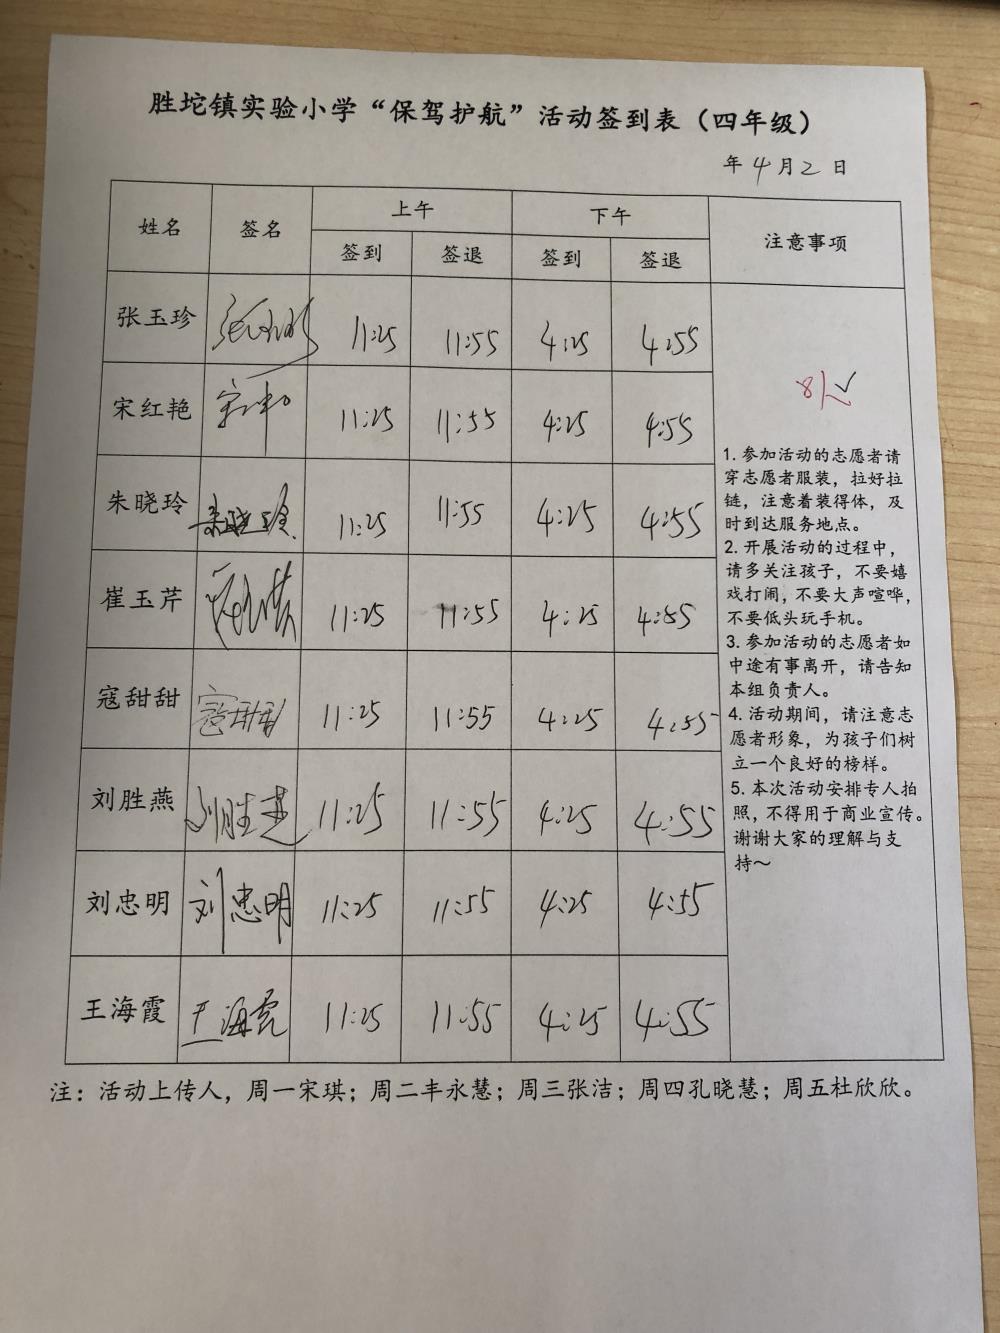 胜坨镇实验小学“保驾护航”活动签到表（四年级）
年 4 月 2 日
姓名 签名 上午 下午 注意事项
签到 签退 签到 签退
张玉珍 11:25 11:55 4:25 4:55
宋红艳 11:25 11:55 4:25 4:55
朱晓玲 朱晓玲 11:25 11:55 4:25 4:55
崔玉芹 11:25 11:55 4:25 4:55
寇甜甜 寇甜甜 11:25 11:55 4:25 4:55
刘胜燕 刘胜燕 11:25 11:55 4:25 4:55
刘忠明 刘忠明 11:25 11:55 4:25 4:55
王海霞 王海霞 11:25 11:55 4:25 4:55
1. 参加活动的志愿者请
穿志愿者服装，拉好拉
链，注意着装得体，及
时到达服务地点。
2. 开展活动的过程中，
请多关注孩子，不要嬉
戏打闹，不要大声喧哗，
不要低头玩手机。
3. 参加活动的志愿者如
中途有事离开，请告知
本组负责人。
4. 活动期间，请注意志
愿者形象，为孩子们树
立一个良好的榜样。
5. 本次活动安排专人拍
照，不得用于商业宣传。
谢谢大家的理解与支
持～
注：活动上传人，周一宋琪；周二丰永慧；周三张洁；周四孔晓慧；周五杜欣欣。